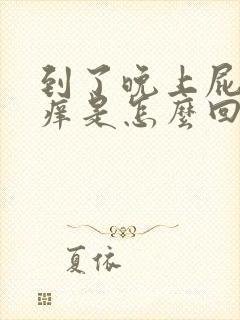 到了晚上屁
痒是怎麼回
夏依